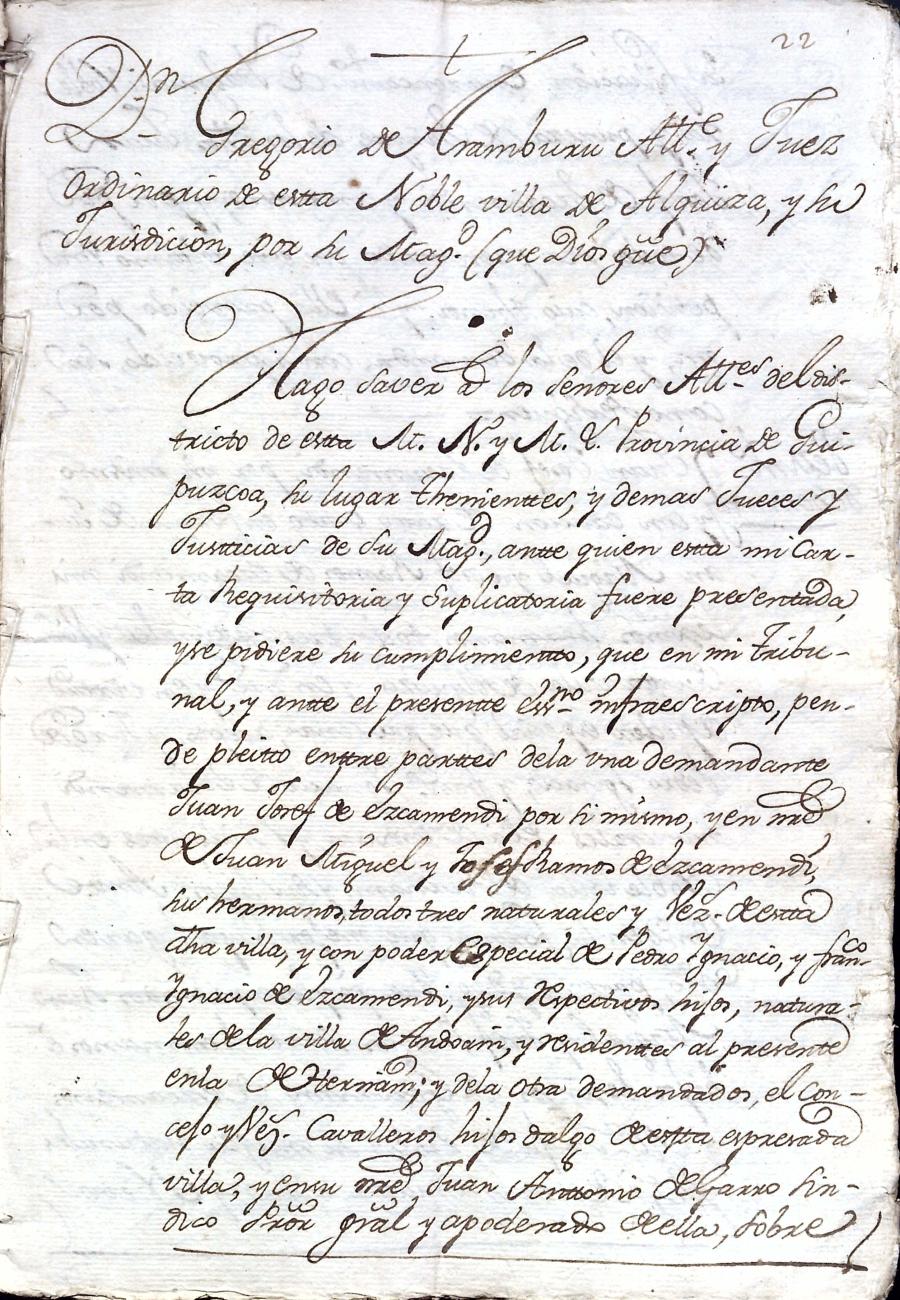 22
Dn
Gregorio de Aramburu Alle. y Juez
Ordinario de estta Noble villa de Alquiza, y su
Jurisdicion, por su Magd. (que Dios gũe)
Hago saver a los señores Alles. del dis-
tricto de estta M. N. y M. L. Provincia de Gui-
puzcoa, su lugar thenienttes, y demas Jueces y
Justticias de su Magd., antte quien estta mi Car-
ta Requisitoria y Suplicatoria fuere presentada,
y se pidiere su cumplimientto, que en mi tribu-
nal, y antte el presentte essno. infraescripto, pen-
de pleitto enttre parttes dela una demandante
Juan Josef de Ezcamendi por si mismo, y en nre
de Juan Miguel y Josef Ramos de Ezcamendi,
sus hermanos, todos tres naturales y Vez.s de estta
dha villa, y con poder Especial de Pedro Ygnacio, y franco.
Ygnacio de Ezcamendi, y sus respectivos hijos, natura-
les de la villa de Andoain, y residenttes al presente
enla de Hernani; y dela otra demandados, el Con-
cejo y Vez.s Cavalleros hijos dalgo de estta espresada
villa, y en su nre Juan Anttonio de Garro Sin-
dico Prõr grãl y apoderado de ella, sobre